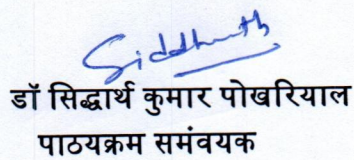 Siddharth
डॉ सिद्धार्थ कुमार पोखरियाल
पाठयक्रम समंवयक